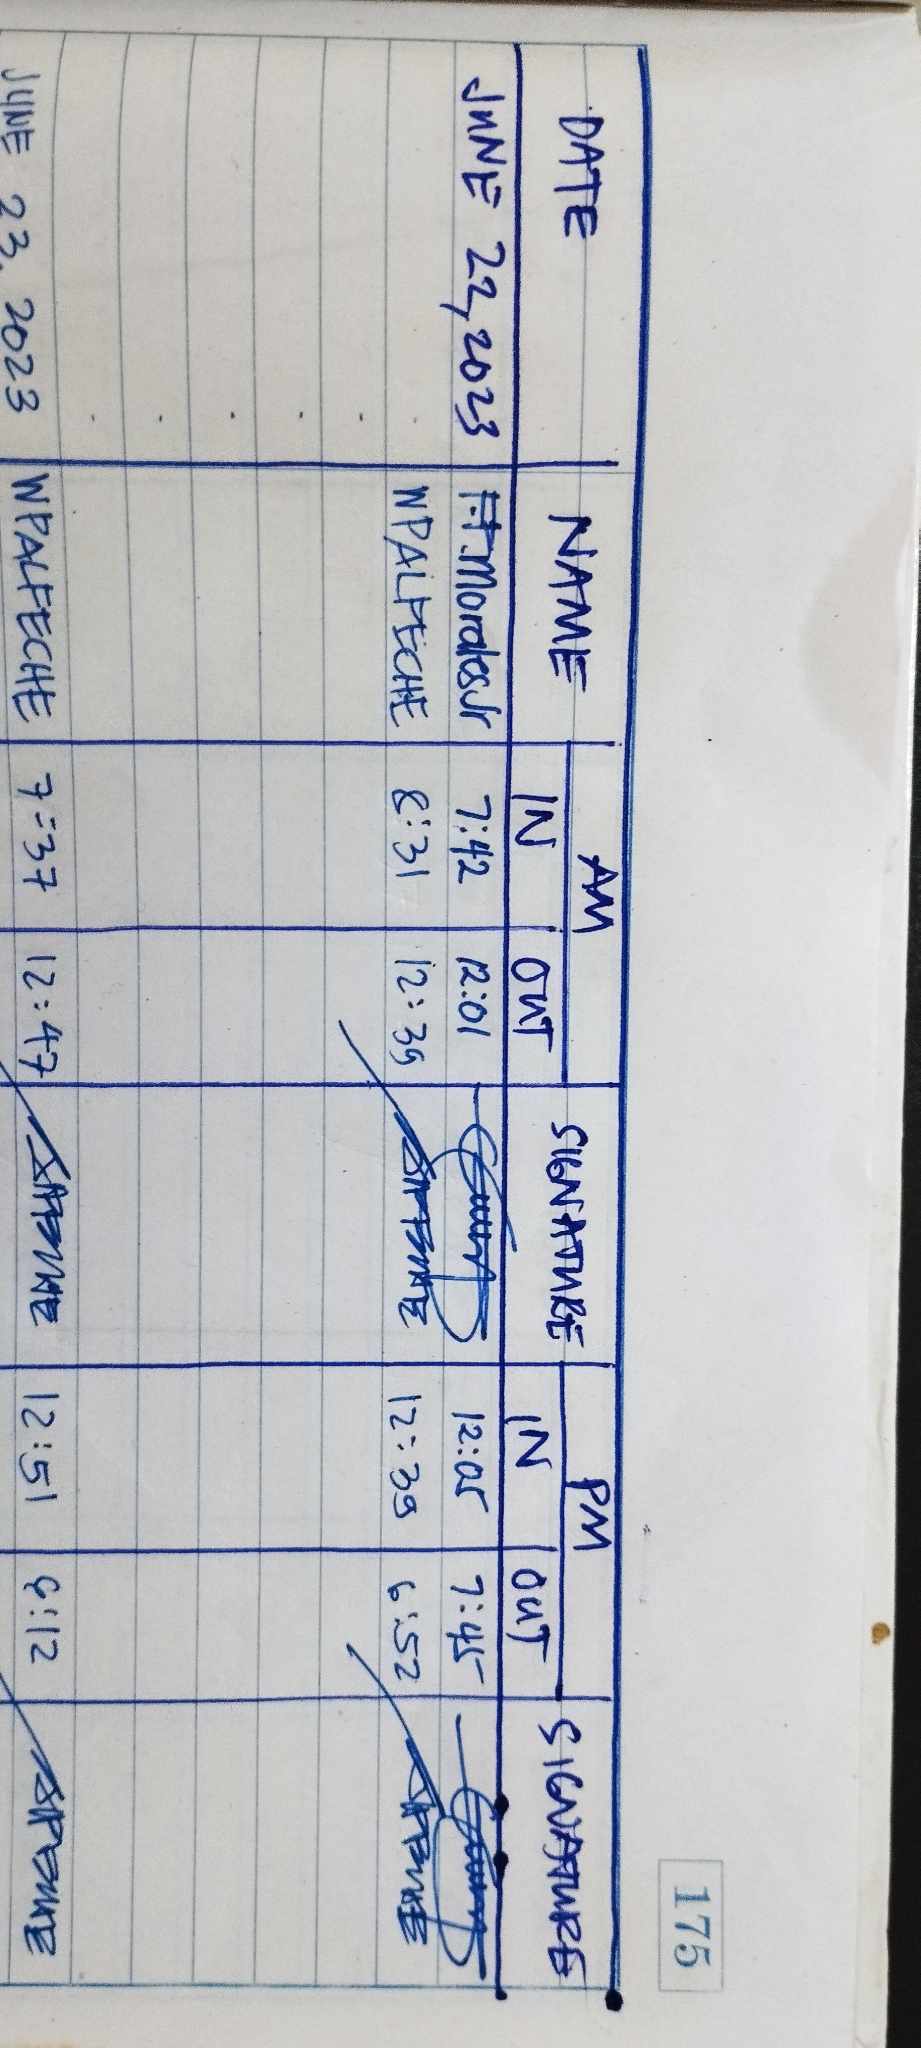 175
DATE NAME AM SIGNATURE PM SIGNATURE
IN OUT IN OUT
JUNE 22, 2023 F.F. Morales Jr 7:42 12:01 12:05 7:45
WPALFECHE 8:31 12:39 12:39 6:52
JUNE 23, 2023 WPALFECHE 7:37 12:47 12:51 6:12